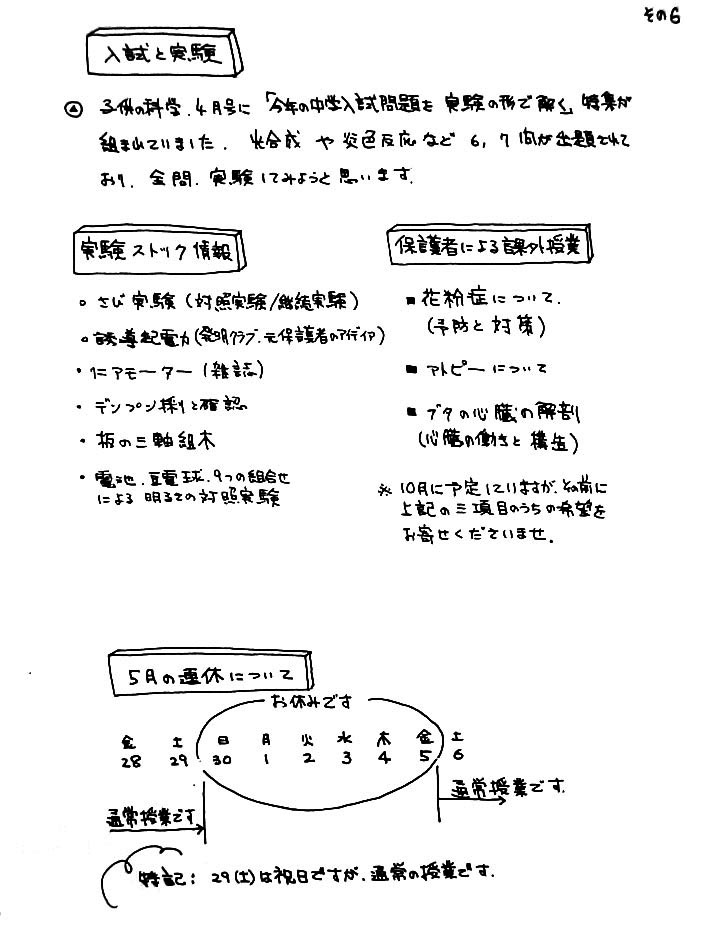 その6
入試と実験
子供の科学.4月号に「今年の中学入試問題を 実験の形で解く」特集が
組まれていました. 光合成 や 炎色反応 など 6,7問が出題されて
おり. 全問.実験してみようと思います.
実験ストック情報
・さび実験(対照実験/継続実験)
・誘導起電力(発明クラブ.元保護者のアイディア)
・リニアモーター(雑誌)
・デンプン採りと確認
・板の三軸組木
・電池.豆電球.9つの組合せ
による 明るさの対照実験
保護者による課外授業
■花粉症について.
(予防と対策)
■アトピーについて
■ブタの心臓の解剖
(心臓の働きと構造)
※10月に予定していますが.その前に
上記の三項目のうちの希望を
お寄せくださいませ.
5月の連休について
お休みです
金 土 日 月 火 水 木 金 土
28 29 30 1 2 3 4 5 6
通常授業です.
通常授業です.
特記:29(土)は祝日ですが.通常の授業です.